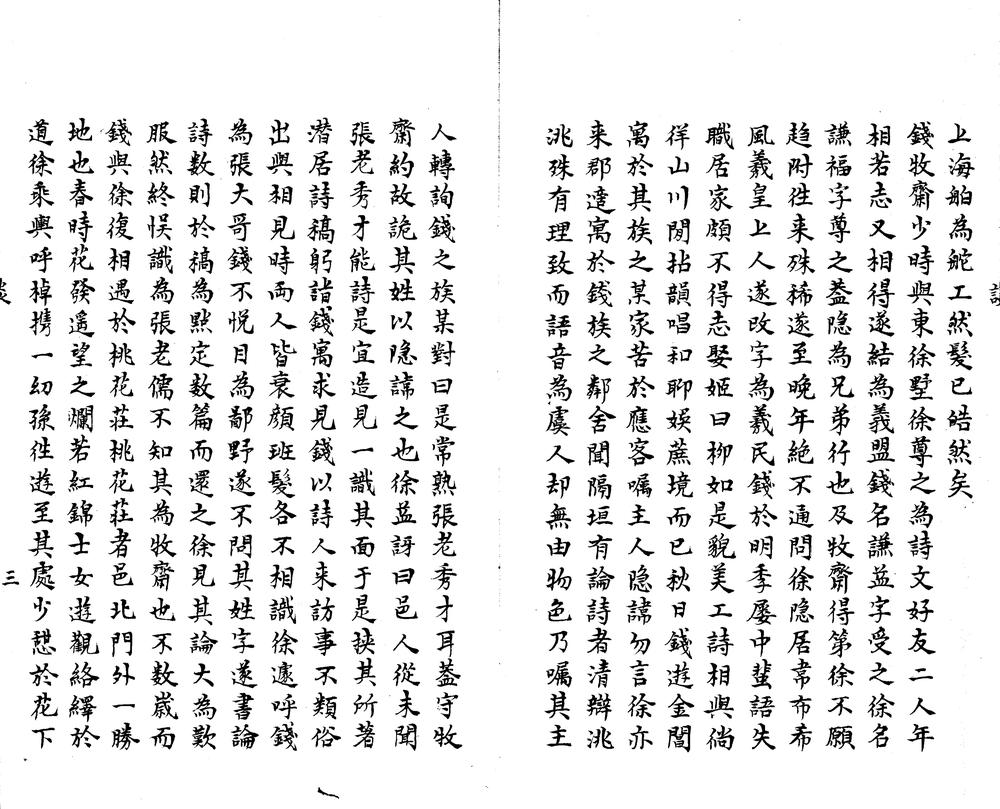 上海舶為舵工然髮已皓然矣
錢牧齋少時與東徐墅徐尊之為詩文好友二人年
相若志又相得遂結為義盟錢名謙益字受之徐名
謙福字尊之葢隐為兄弟行也及牧齋得第徐不願
趋附徃来殊稀遂至晚年絶不通問徐隐居韋布希
風羲皇上人遂改字為羲民錢於明季屡中蜚語失
職居家頗不得志娶姬曰栁如是貌美工詩相與徜
徉山川閒拈韻唱和聊娱蔗境而已秋日錢遊金閶
寓於其族之某家苦於應客嘱主人隐諱勿言徐亦
来郡遑寓於錢族之鄰舍聞隔垣有論詩者清辯洮
洮殊有理致而語音為虞人却無由物色乃嘱其主
人轉詢錢之族某對曰是常熟張老秀才耳葢守牧
齋約故詭其姓以隐諱之也徐益訝曰邑人從未聞
張老秀才能詩是宜造見一識其面于是挾其所著
潜居詩稿躬詣錢寓求見錢以詩人来訪事不類俗
出與相見時两人皆衰顔班髮各不相識徐遽呼錢
為張大哥錢不悦目為鄙野遂不問其姓字遂書論
詩数則於稿為㸃定数篇而還之徐見其論大為歎
服然終悞識為張老儒不知其為牧齋也不数嵗而
錢與徐復相遇於桃花莊桃花莊者邑北門外一勝
地也春時花發遥望之爛若紅錦士女遊觀絡繹於
道徐乘興呼棹携一幼孫徃遊至其處少憇於花下
三